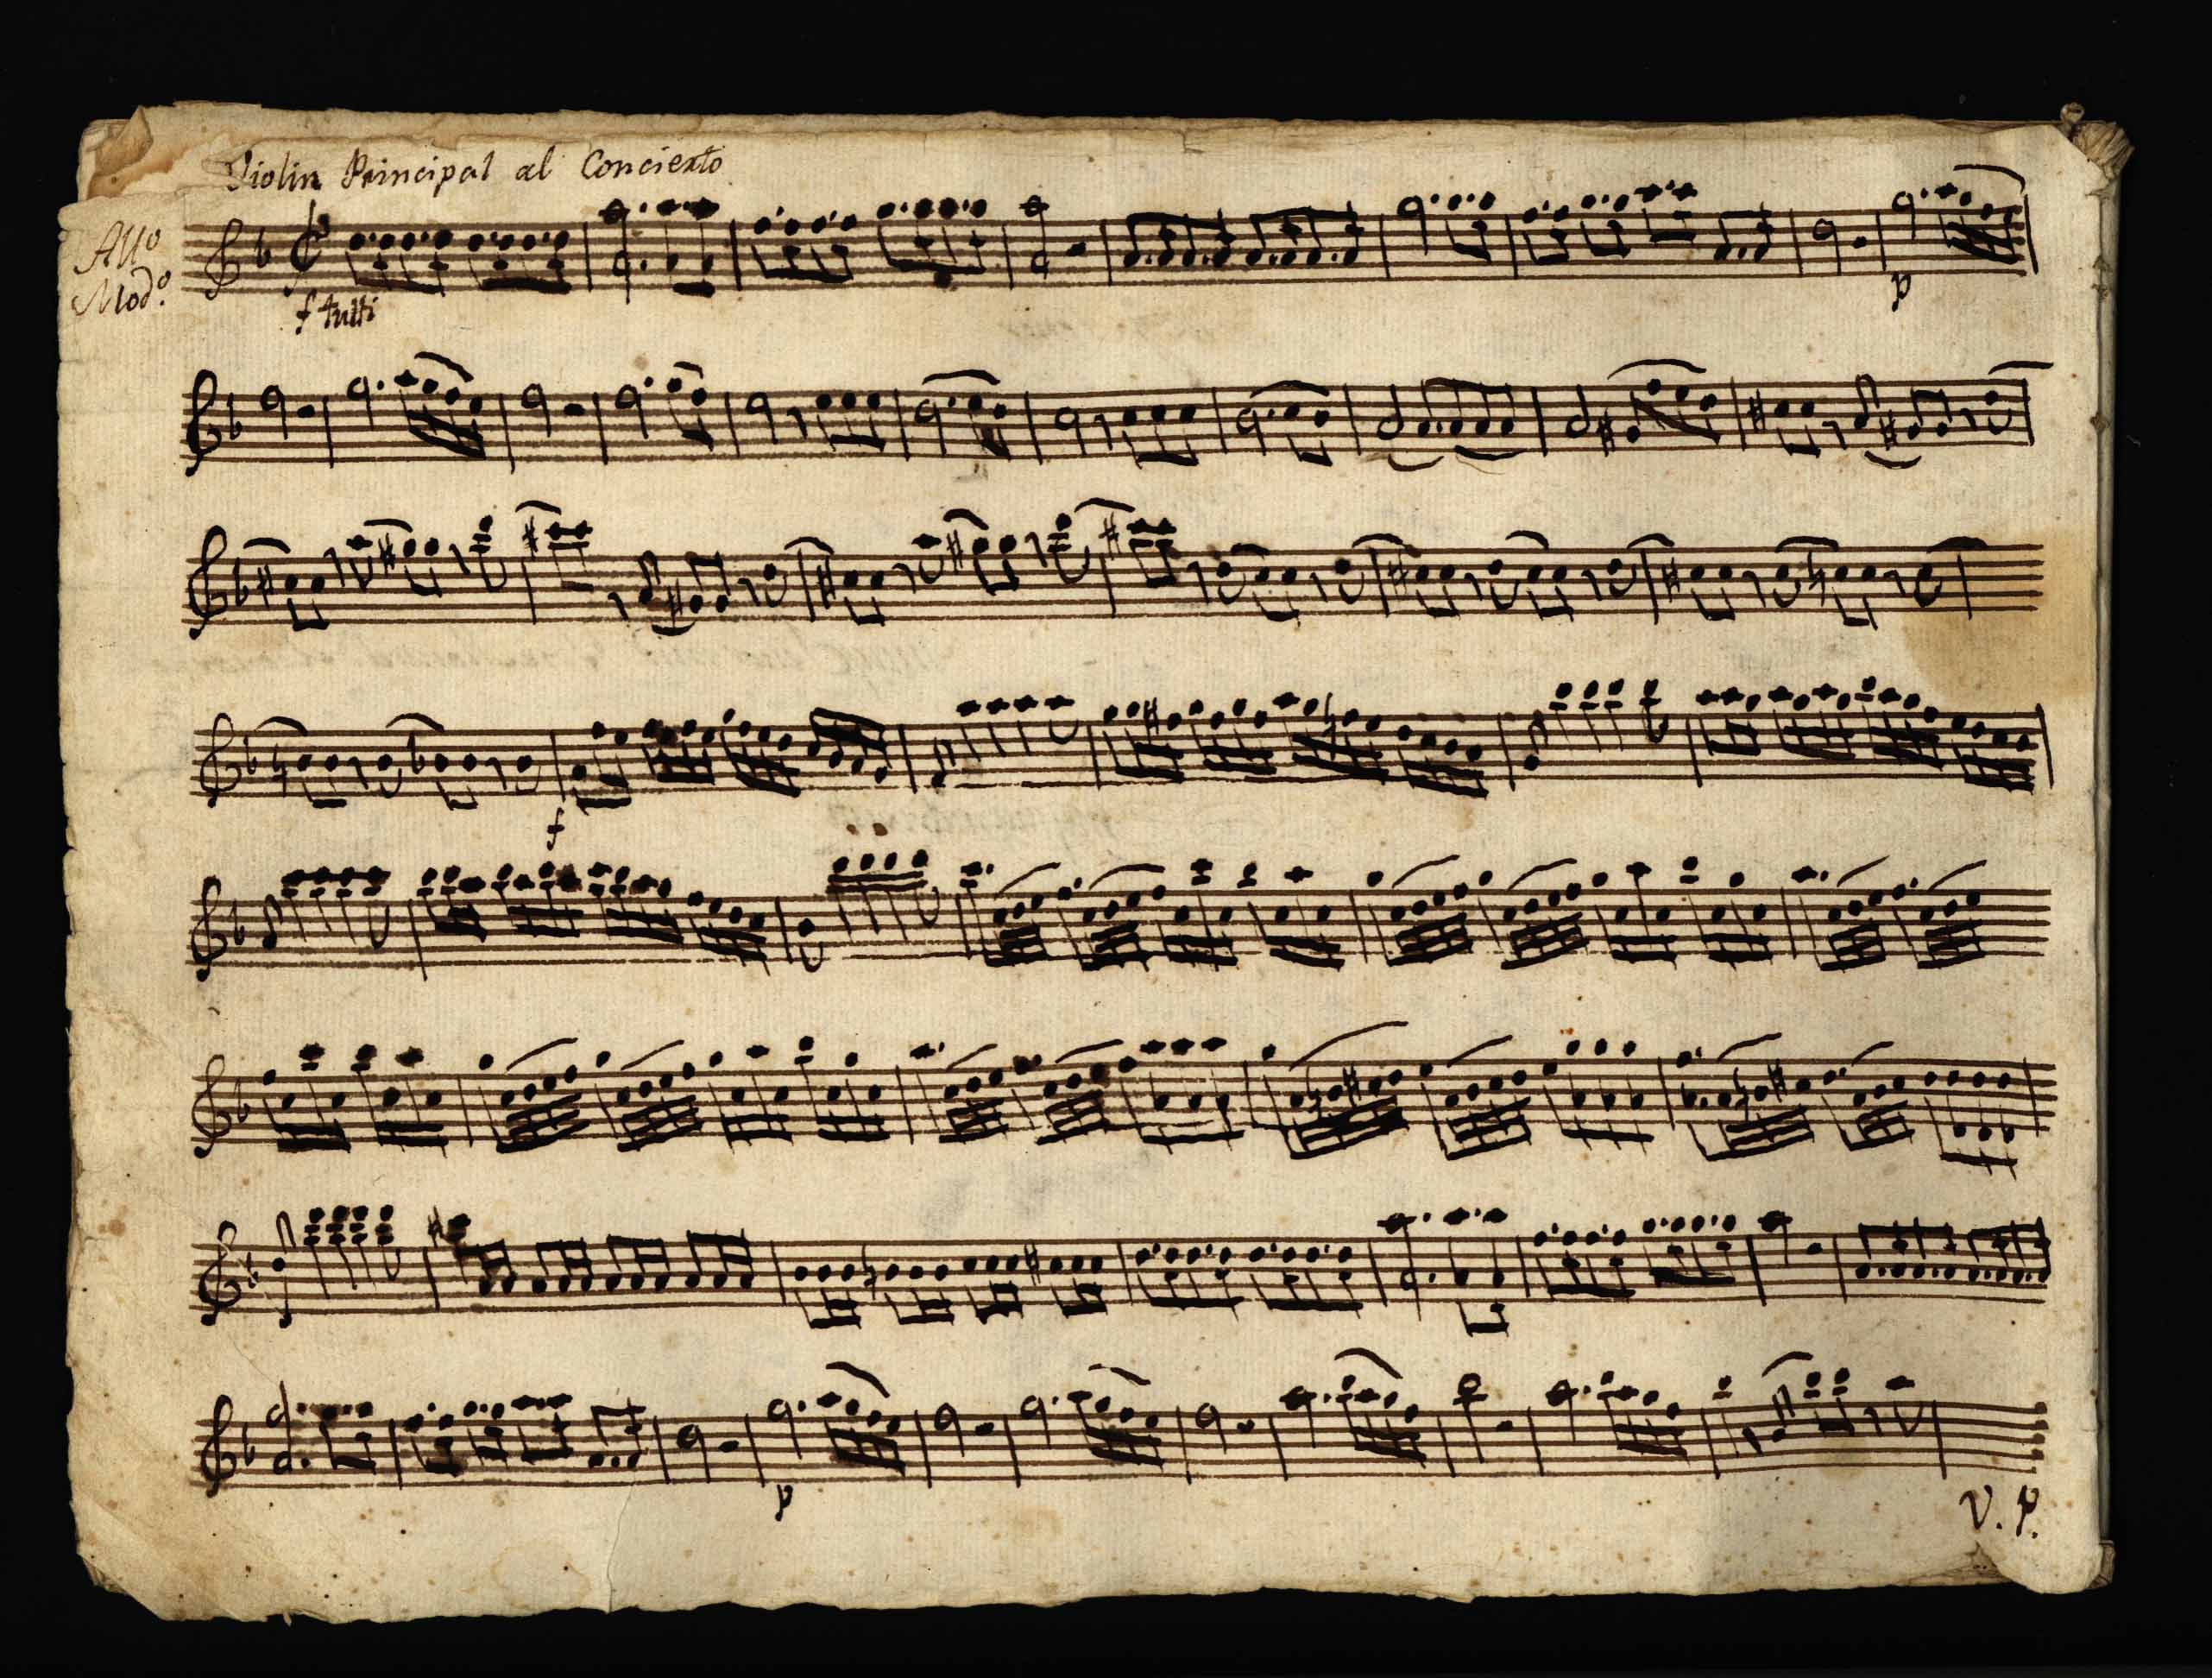 Violin Principal al Concierto
Allo
Modo.
f tutti
p
f
p
V. P.